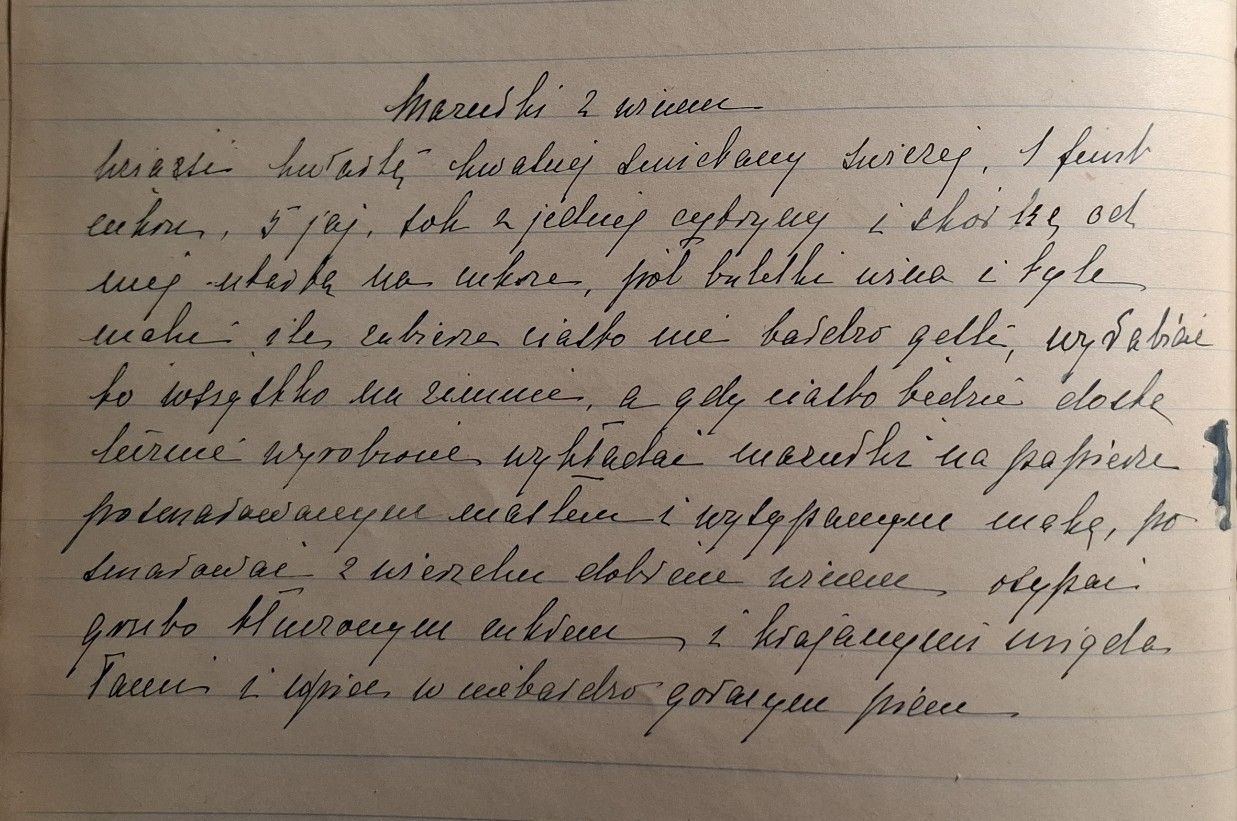 Mazurki z winem
Wziąść kwartę kwaśnej śmietany świeżej, 1 funt
cukru, 5 jaj, sok z jednej cytryny i skórkę od
niej utartą na cukrze, pół butelki wina i tyle
mąki ile zabierze ciasto nie bardzo gęste, wyrabiać
to wszystko na zimnie, a gdy ciasto będzie dosta
tecznie wyrobione wykładać mazurki na papierze
posmarowanym masłem i wysypanym mąką, po
smarować z wierzchu dobrem winem osypać
grubo tłuczonym cukrem i krajanymi migda
łami i upiec w niebardzo gorącym piecu